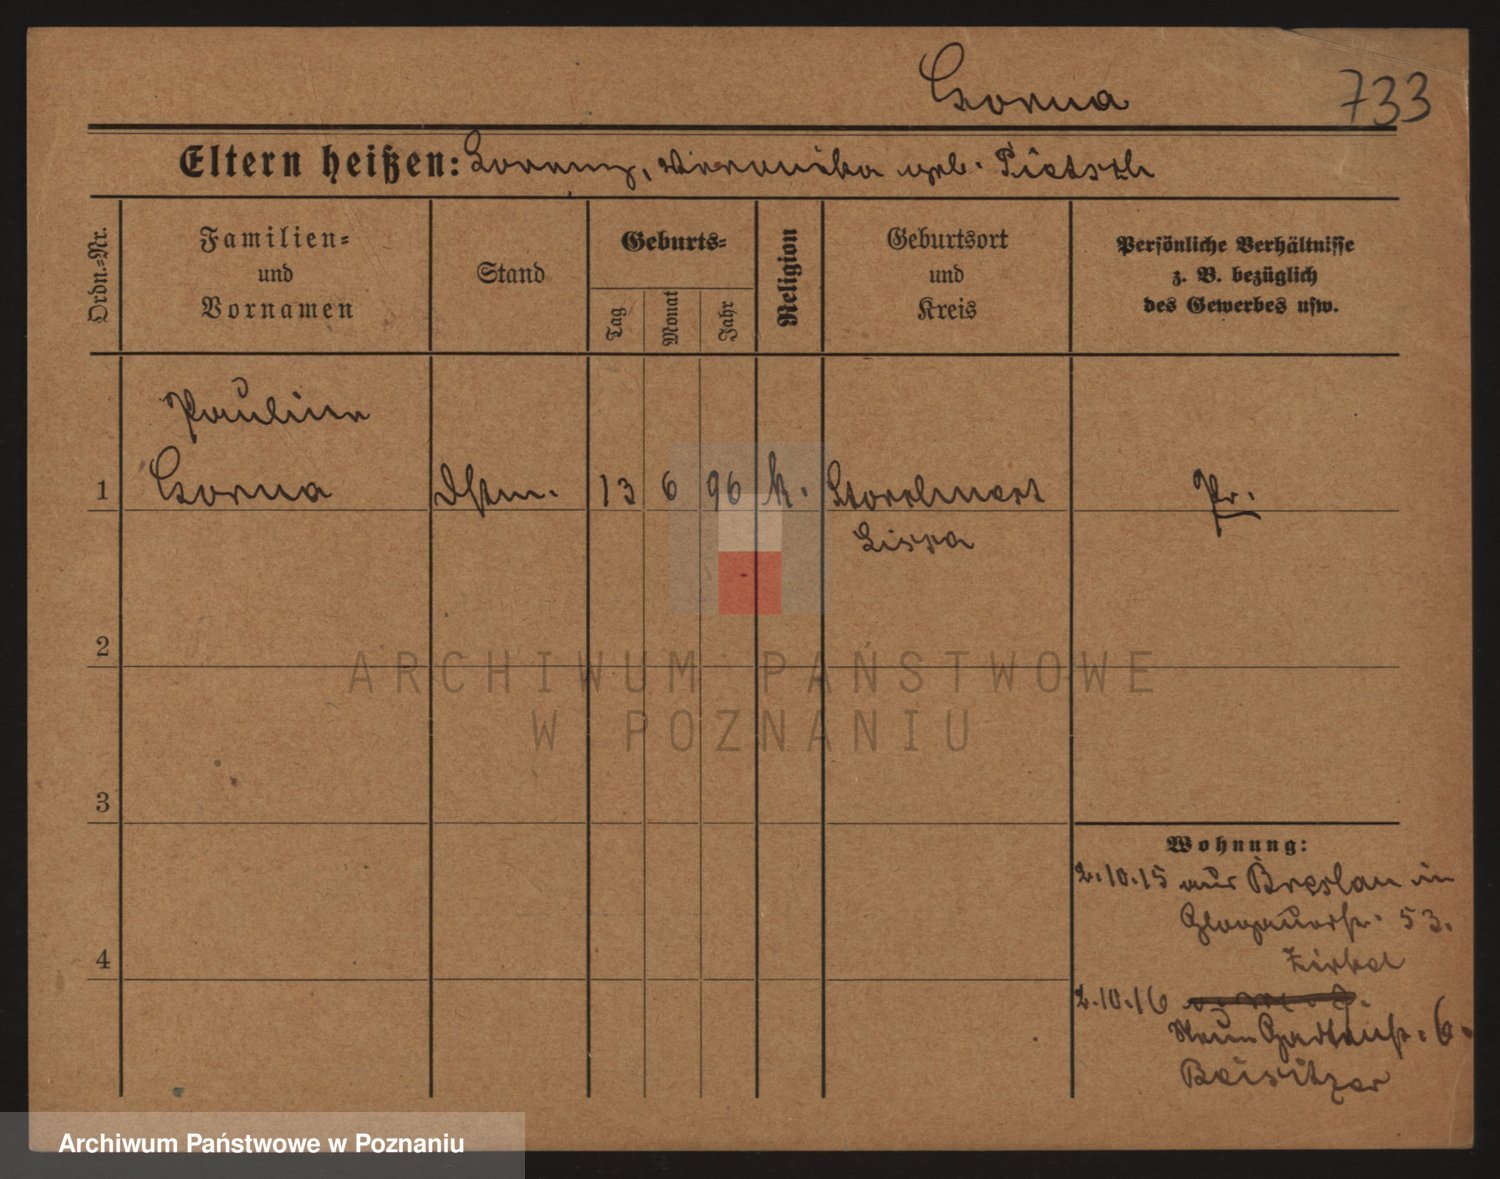 Gorna
733
Eltern heißen: Lorenz, Veronika geb. Pietsch
Ordn.-Nr.
Familien-
und
Vornamen
Stand
Geburts-
Tag
Monat
Jahr
Religion
Geburtsort
und
Kreis
Persönliche Verhältnisse
z. B. bezüglich
des Gewerbes usw.
Pauline
1
Gorna
Dstm.
13
6
96
k.
Storchnest
Pr.
Lissa
2
ARCHIWUM PAŃSTWOWE
W POZNANIU
3
Wohnung:
2.10.15 aus Breslau in
Glogauerstr. 53.
Zirkel
4
2.10.16
Neue Gartenstr. 6.
Beisitzer
Archiwum Państwowe w Poznaniu